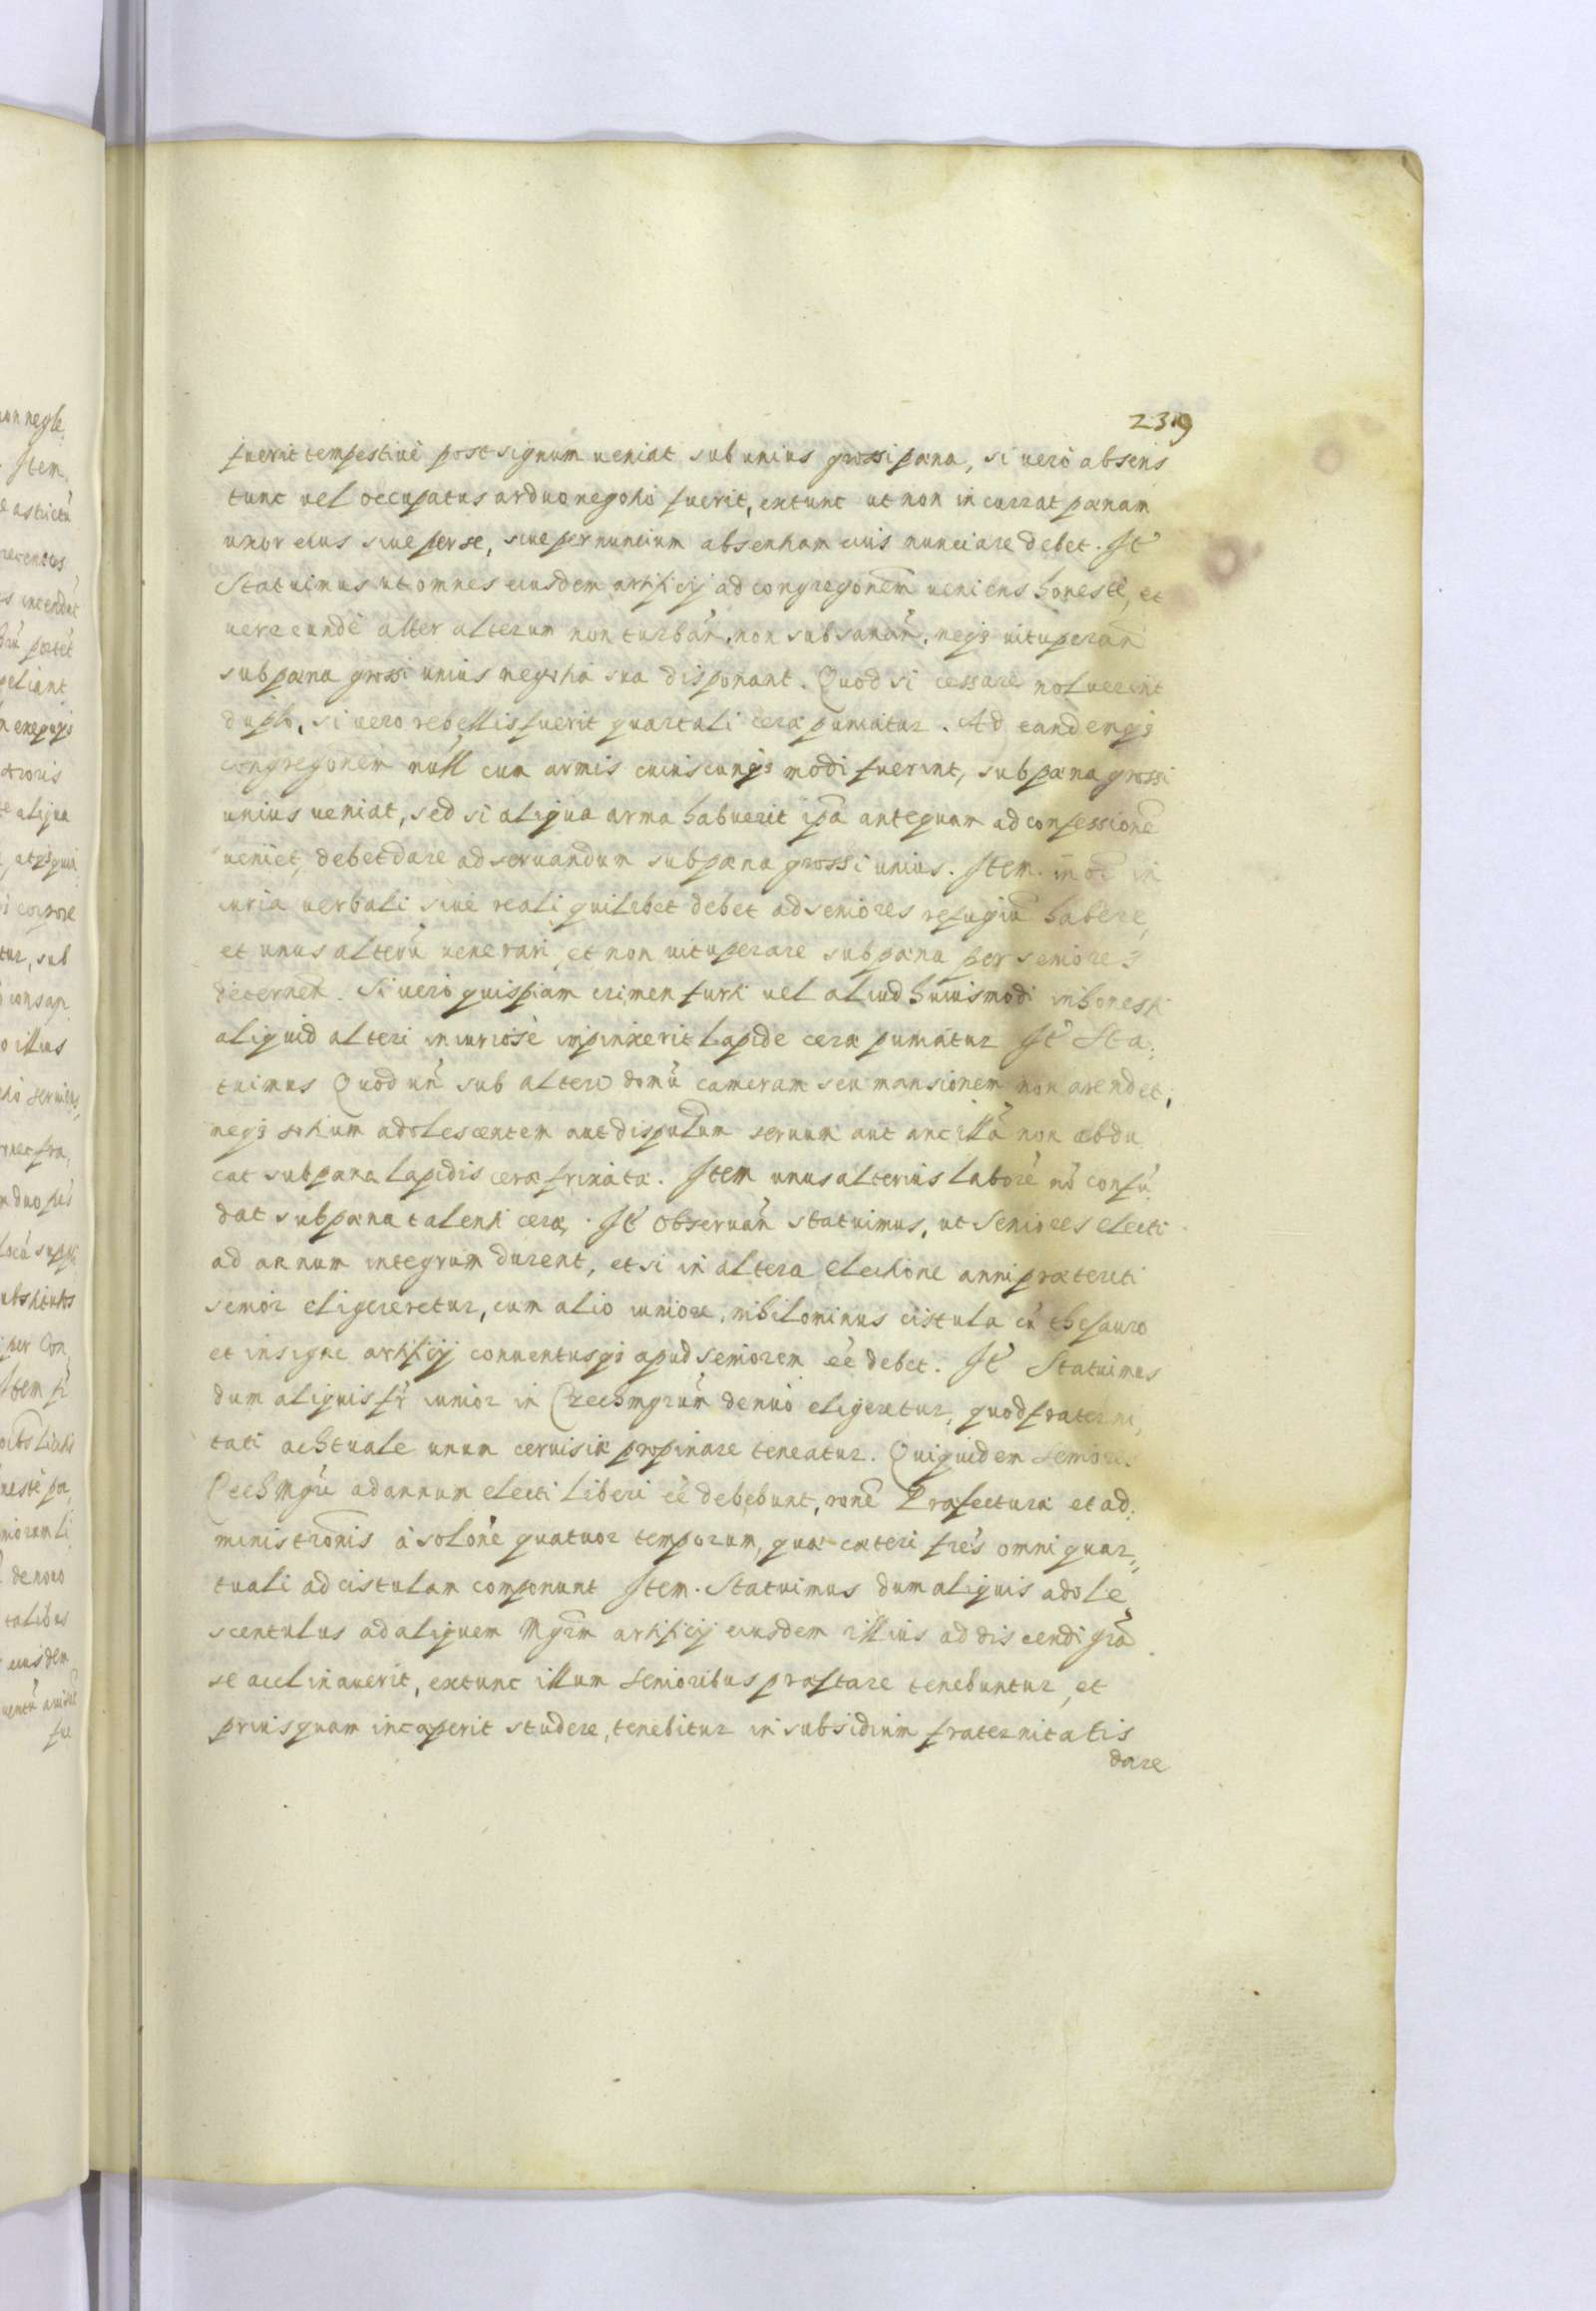 239
fuerit tempestiuè post signum ueniat sub unius grossi pæna, si uerò absens
tunc uel occupatus arduo negotio fuerit, extunc ut non incurrat pænam
uxor eius siue per se, siue per nuncium absentiam eius nunciare debet. Jt̃
Statuimus ut omnes eiusdem artificij ad congregonem̃ ueniens honestè, et
uerecundè alter alterum non turbañ, non subsanañ, neqȝ uituperañ
sub pæna grossi unius negotia sua disponant. Quod si cessare noluerint
duplo, si uero rebellis fuerit quartali ceræ puniatur. Ad eandemqȝ
congregonem̃ null cum armis cuiuscunqȝ modi fuerint, sub pæna grossi
unius ueniat, sed si aliqua arma habuerit ipã antequam ad confessionẽ
ueniet, debet dare ad seruandum sub pæna grossi unius. Jtem. in oĩ in
iuria uerbali siuè reali quilebet debet ad seniores refugiũ habere,
et unus alterũ uenerari, et non uituperare sub pæna per seniores
decerneñ. Si uerò quispiam crimen furti uel aliud huiusmodi inhonesti
aliquid alteri iniuriosè impinxerit lapide ceræ puniatur Jt̃ Sta:
tuimus Quod uñ sub altero domũ cameram seu mansionem non arendet,
neqȝ sotium adolescentem aut dispulum seruum aut ancillã non abdu
cat sub pæna lapidis ceræ frixatæ. Jtem unus alterius laborẽ nõ confũ
dat sub pæna talenti ceræ. Jt̃ obseruañ statuimus, ut Seniores electi
ad annum integrum durent, et si in altera electione anni præteriti
senior eligeretur, cum alio iuniore, nihilominus cistula cũ thesauro
et insigne artificij conuentusqȝ apud seniorem eẽ debet. Jt̃ Statuimus
dum aliquis fr̃ iunior in Czechmgrum̃ denuò eligeretur, quod fraterni,
tati achtuale unum ceruisiæ propinare teneatur. Qui quidem seniores
Czech Mgrĩ ad annum electi liberi eẽ debebunt, ronẽ Præfecturæ et ad:
ministronis̃ à solonẽ quatuor temporum, quæ cæteri frẽs omni quar„
tuali ad cistulam componunt Jtem. Statuimus dum aliquis adole,
scentulus ad aliquem Mgrm̃ artificij eiusdem illius addiscendi grã
se acclinauerit, extunc illum senioribus præstare tenebuntur, et
priusquam incæperit studere, tenebitur in subsidium fraternitatis
dare